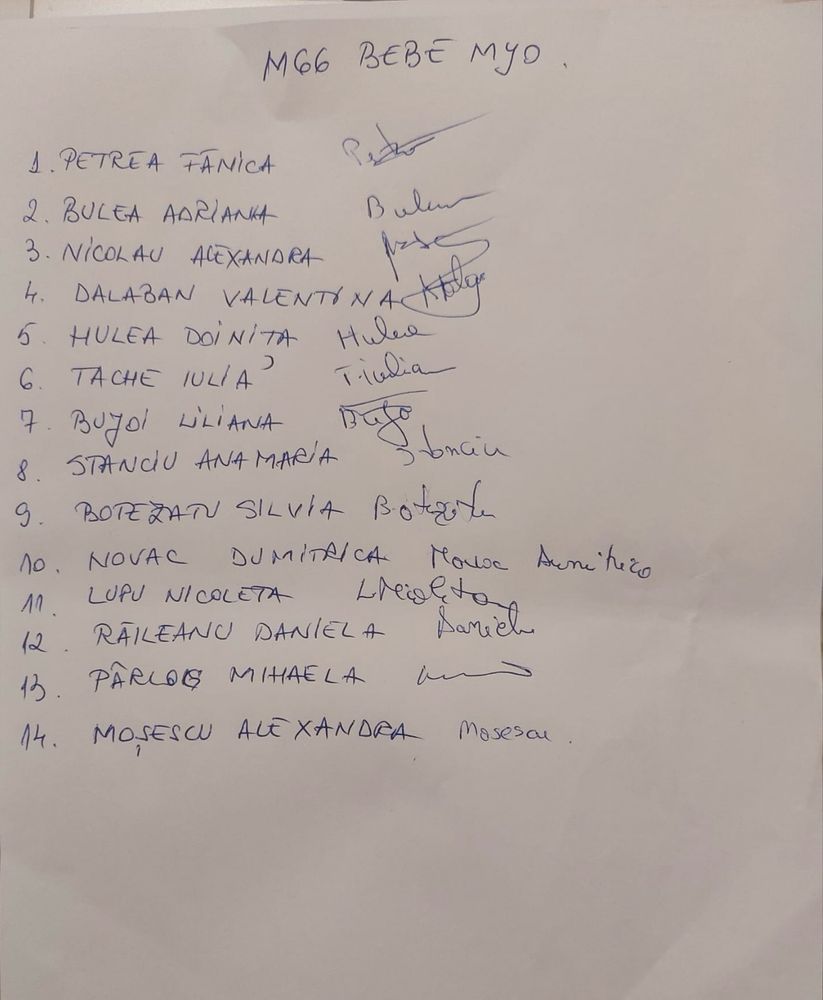 M66 BEBE MYO.
1. PETREA FĂNICA
2. BULEA ADRIANA Bulea
3. NICOLAU ALEXANDRA
4. DALABAN VALENTINA
5. HULEA DOINIȚA Hulea
6. TACHE IULIA Tiulia
7. BUJOI LILIANA
8. STANCIU ANAMARIA Stanciu
9. BOTEZATU SILVIA Botezatu
10. NOVAC DUMITRICA Novac Dumitrica
11. LUPU NICOLETA LNicoleta
12. RĂILEANU DANIELA Daniela
13. PÂRLOG MIHAELA
14. MOȘESCU ALEXANDRA Mosescu.